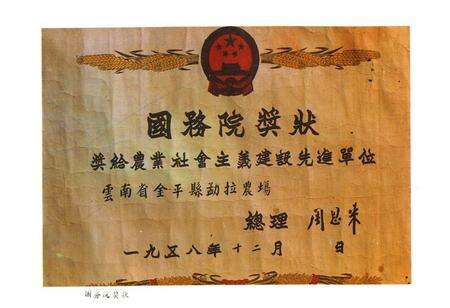 國務院獎狀
獎給農業社會主義建設先進單位
雲南省金平縣勐拉農場
總理 周恩来
一九五八年十二月 日
国务院奖状